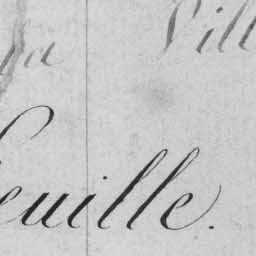 la Vill
feuille.